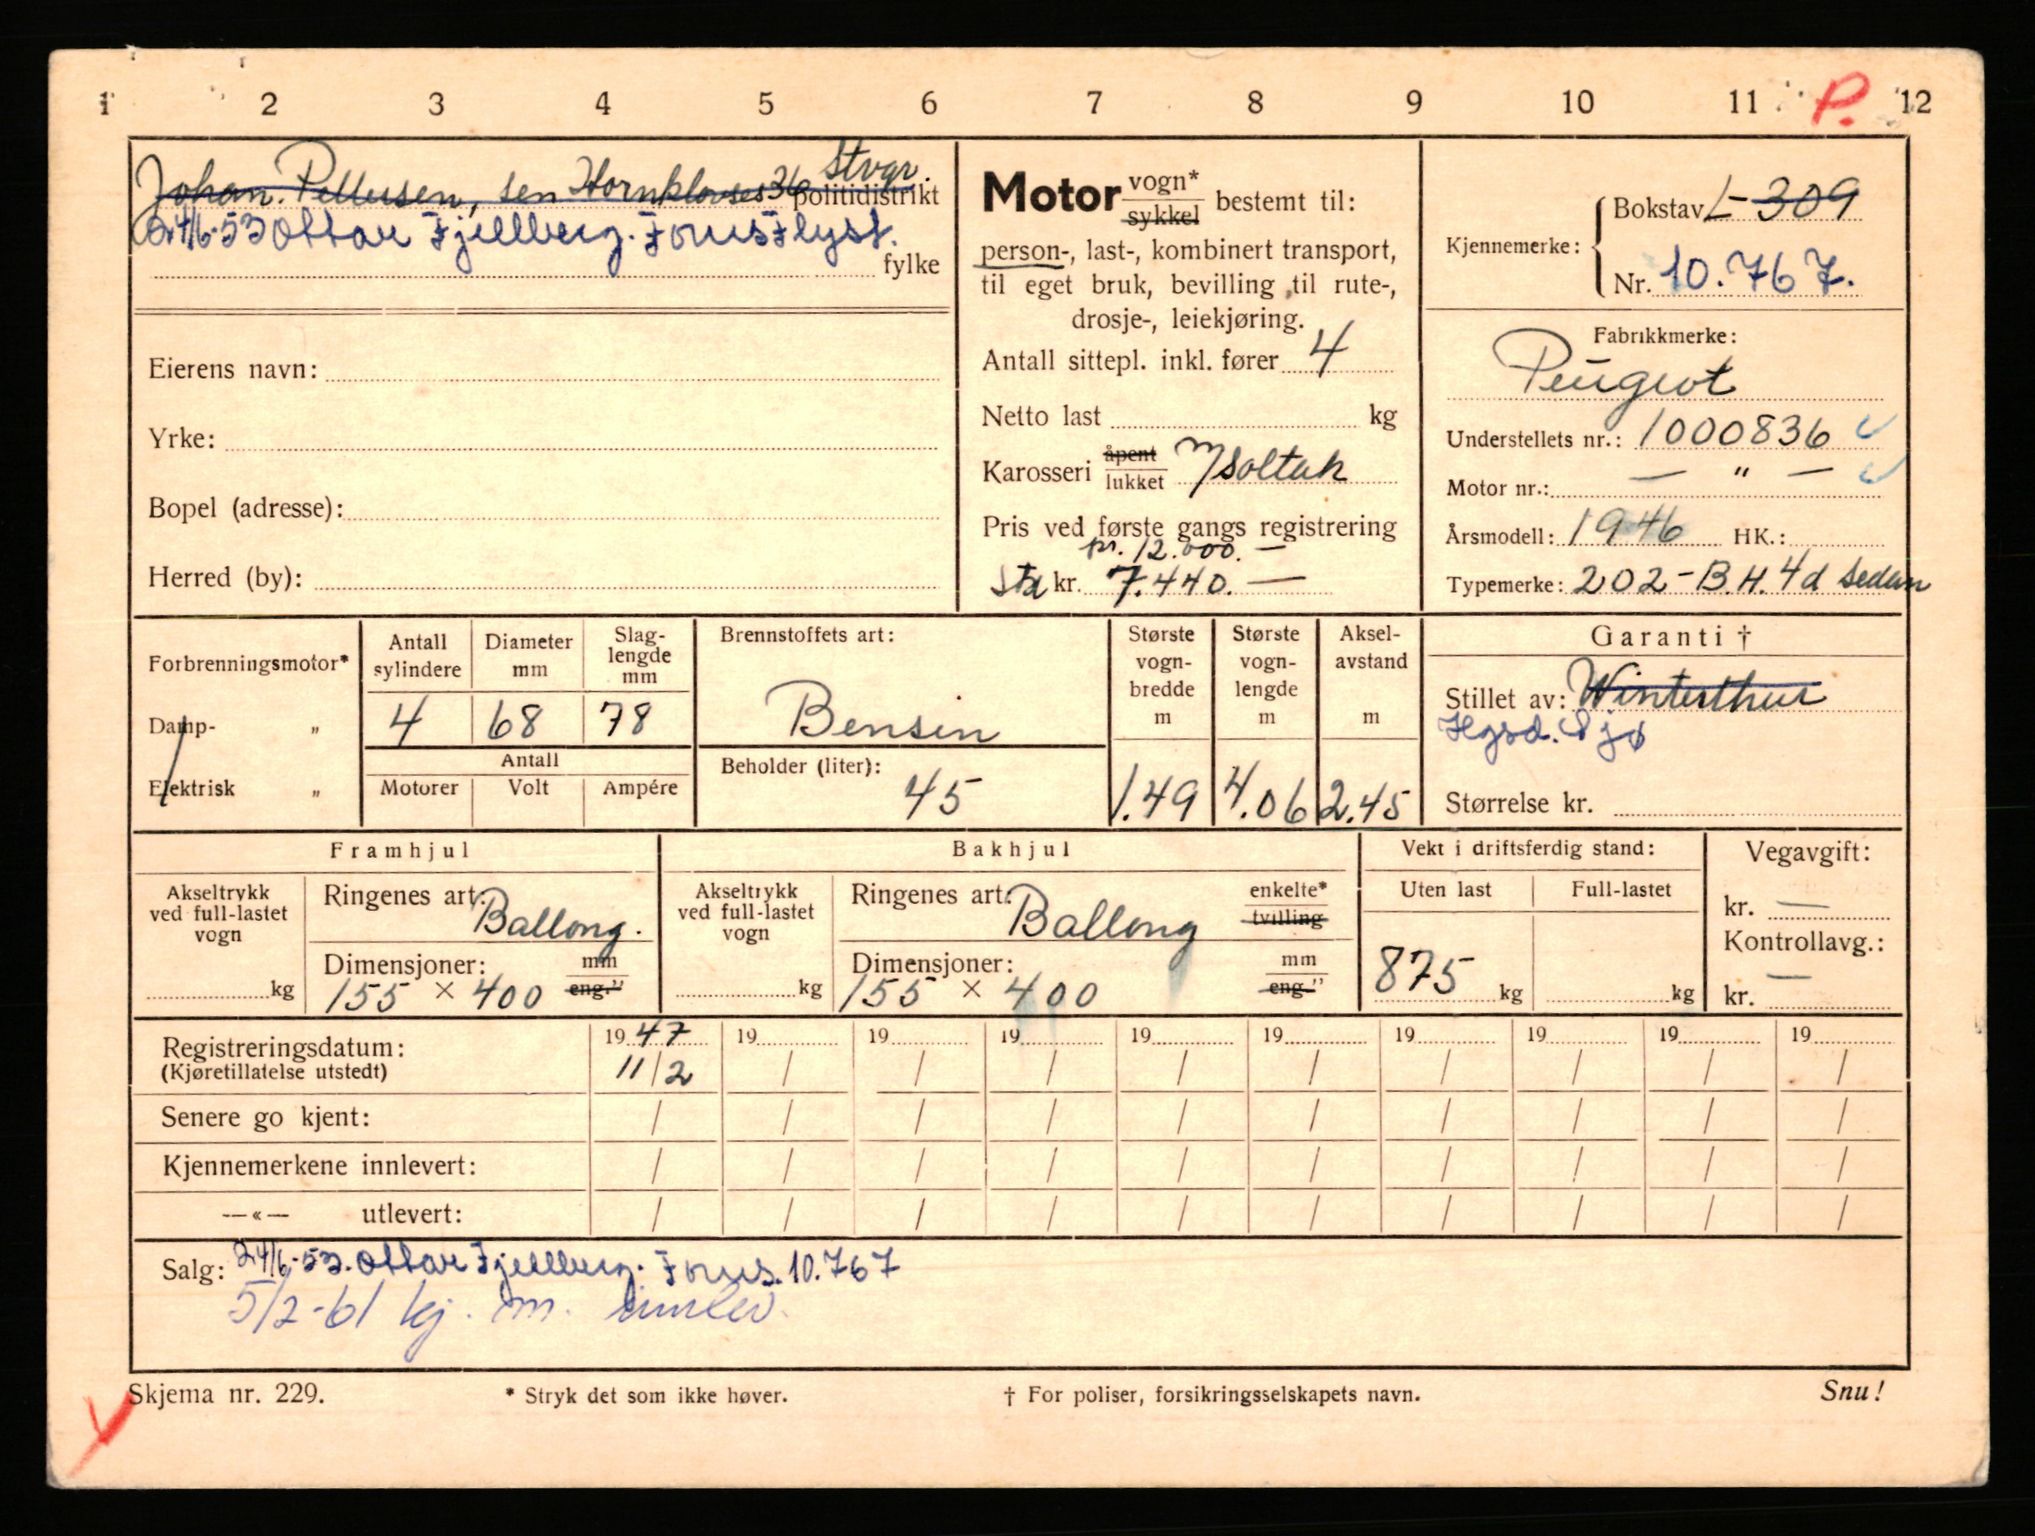 1 2 3 4 5 6 7 8 9 10 11 P. 12
Johan. Pettersen, sen Hornklovesg 36 Stvgr. politidistrikt
24/6-53 Ottar Fjellberg. Forus Flyst.
fylke
Eierens navn:
Yrke:
Bopel (adresse):
Herred (by):
Motor vogn* sykkel bestemt til:
person-, last-, kombinert transport,
til eget bruk, bevilling til rute-,
drosje-, leiekjøring.
Antall sittepl. inkl. fører 4
Netto last kg
Karosseri åpent lukket m/soltak
Pris ved første gangs registrering
pr. 12.000.—
kr. 7.440.—
Kjennemerke:
Bokstav L-309
Nr. 10.767.
Fabrikkmerke:
Peugeot
Understellets nr.: 1000836
Motor nr.: — " —
Årsmodell: 1946 HK.:
Typemerke: 202-B.H. 4d sedan
Forbrenningsmotor*
Damp- „
Elektrisk „
Antall sylindere Diameter mm Slag-lengde mm
4 68 78
Antall
Motorer Volt Ampére
Brennstoffets art:
Bensin
Beholder (liter):
45
Største vogn-bredde m
1.49
Største vogn-lengde m
4.06
Aksel-avstand m
2.45
Garanti †
Stillet av: Winterthur
Hgsd. Sjø
Størrelse kr.
Framhjul
Akseltrykk ved full-lastet vogn
kg
Ringenes art: Ballong.
Dimensjoner: mm
155 × 400 eng."
Bakhjul
Akseltrykk ved full-lastet vogn
kg
Ringenes art: Ballong enkelte* tvilling
Dimensjoner: mm
155 × 400 eng."
Vekt i driftsferdig stand:
Uten last Full-lastet
875 kg kg
Vegavgift:
kr. —
Kontrollavg.:
kr. —
Registreringsdatum: 1947 19 19 19 19 19 19 19 19 19
(Kjøretillatelse utstedt) 11/2 / / / / / / / / /
Senere go kjent: / / / / / / / / / /
Kjennemerkene innlevert: / / / / / / / / / /
—«— utlevert: / / / / / / / / / /
Salg: 24/6-53. Ottar Fjellberg. Forus. 10.767
5/2-61 kj. m. innlev.
Skjema nr. 229. * Stryk det som ikke høver. † For poliser, forsikringsselskapets navn. Snu!